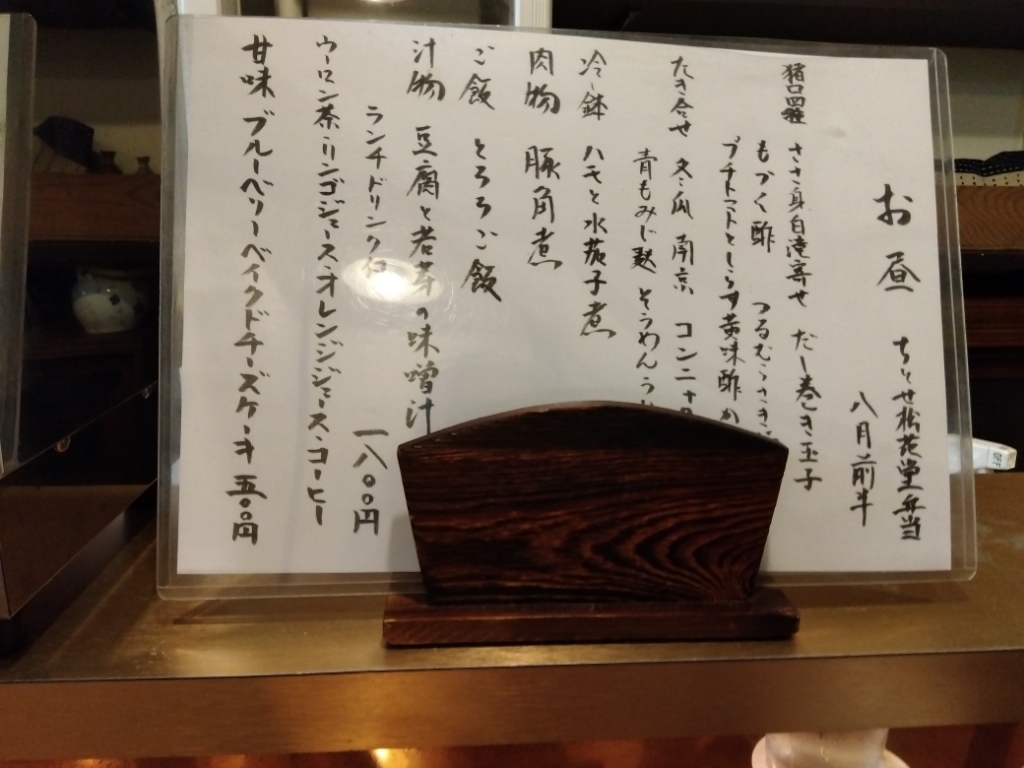 お昼 ちとせ松花堂弁当
八月前半
猪口四種 ささ身白滝寄せ だし巻き玉子
もづく酢 つるむらさき
プチトマトとしらす黄味酢
たき合せ 冬瓜 南京 コンニャク
青もみじ麸 そうめんうり
冷し鉢 ハモと水茄子煮
肉物 豚角煮
ご飯 とろろご飯
汁物 豆腐と若芽の味噌汁
ランチドリンク付 一八〇〇円
ウーロン茶・リンゴジュース・オレンジジュース・コーヒー
甘味 ブルーベリーベイクドチーズケーキ 五〇円
OFF